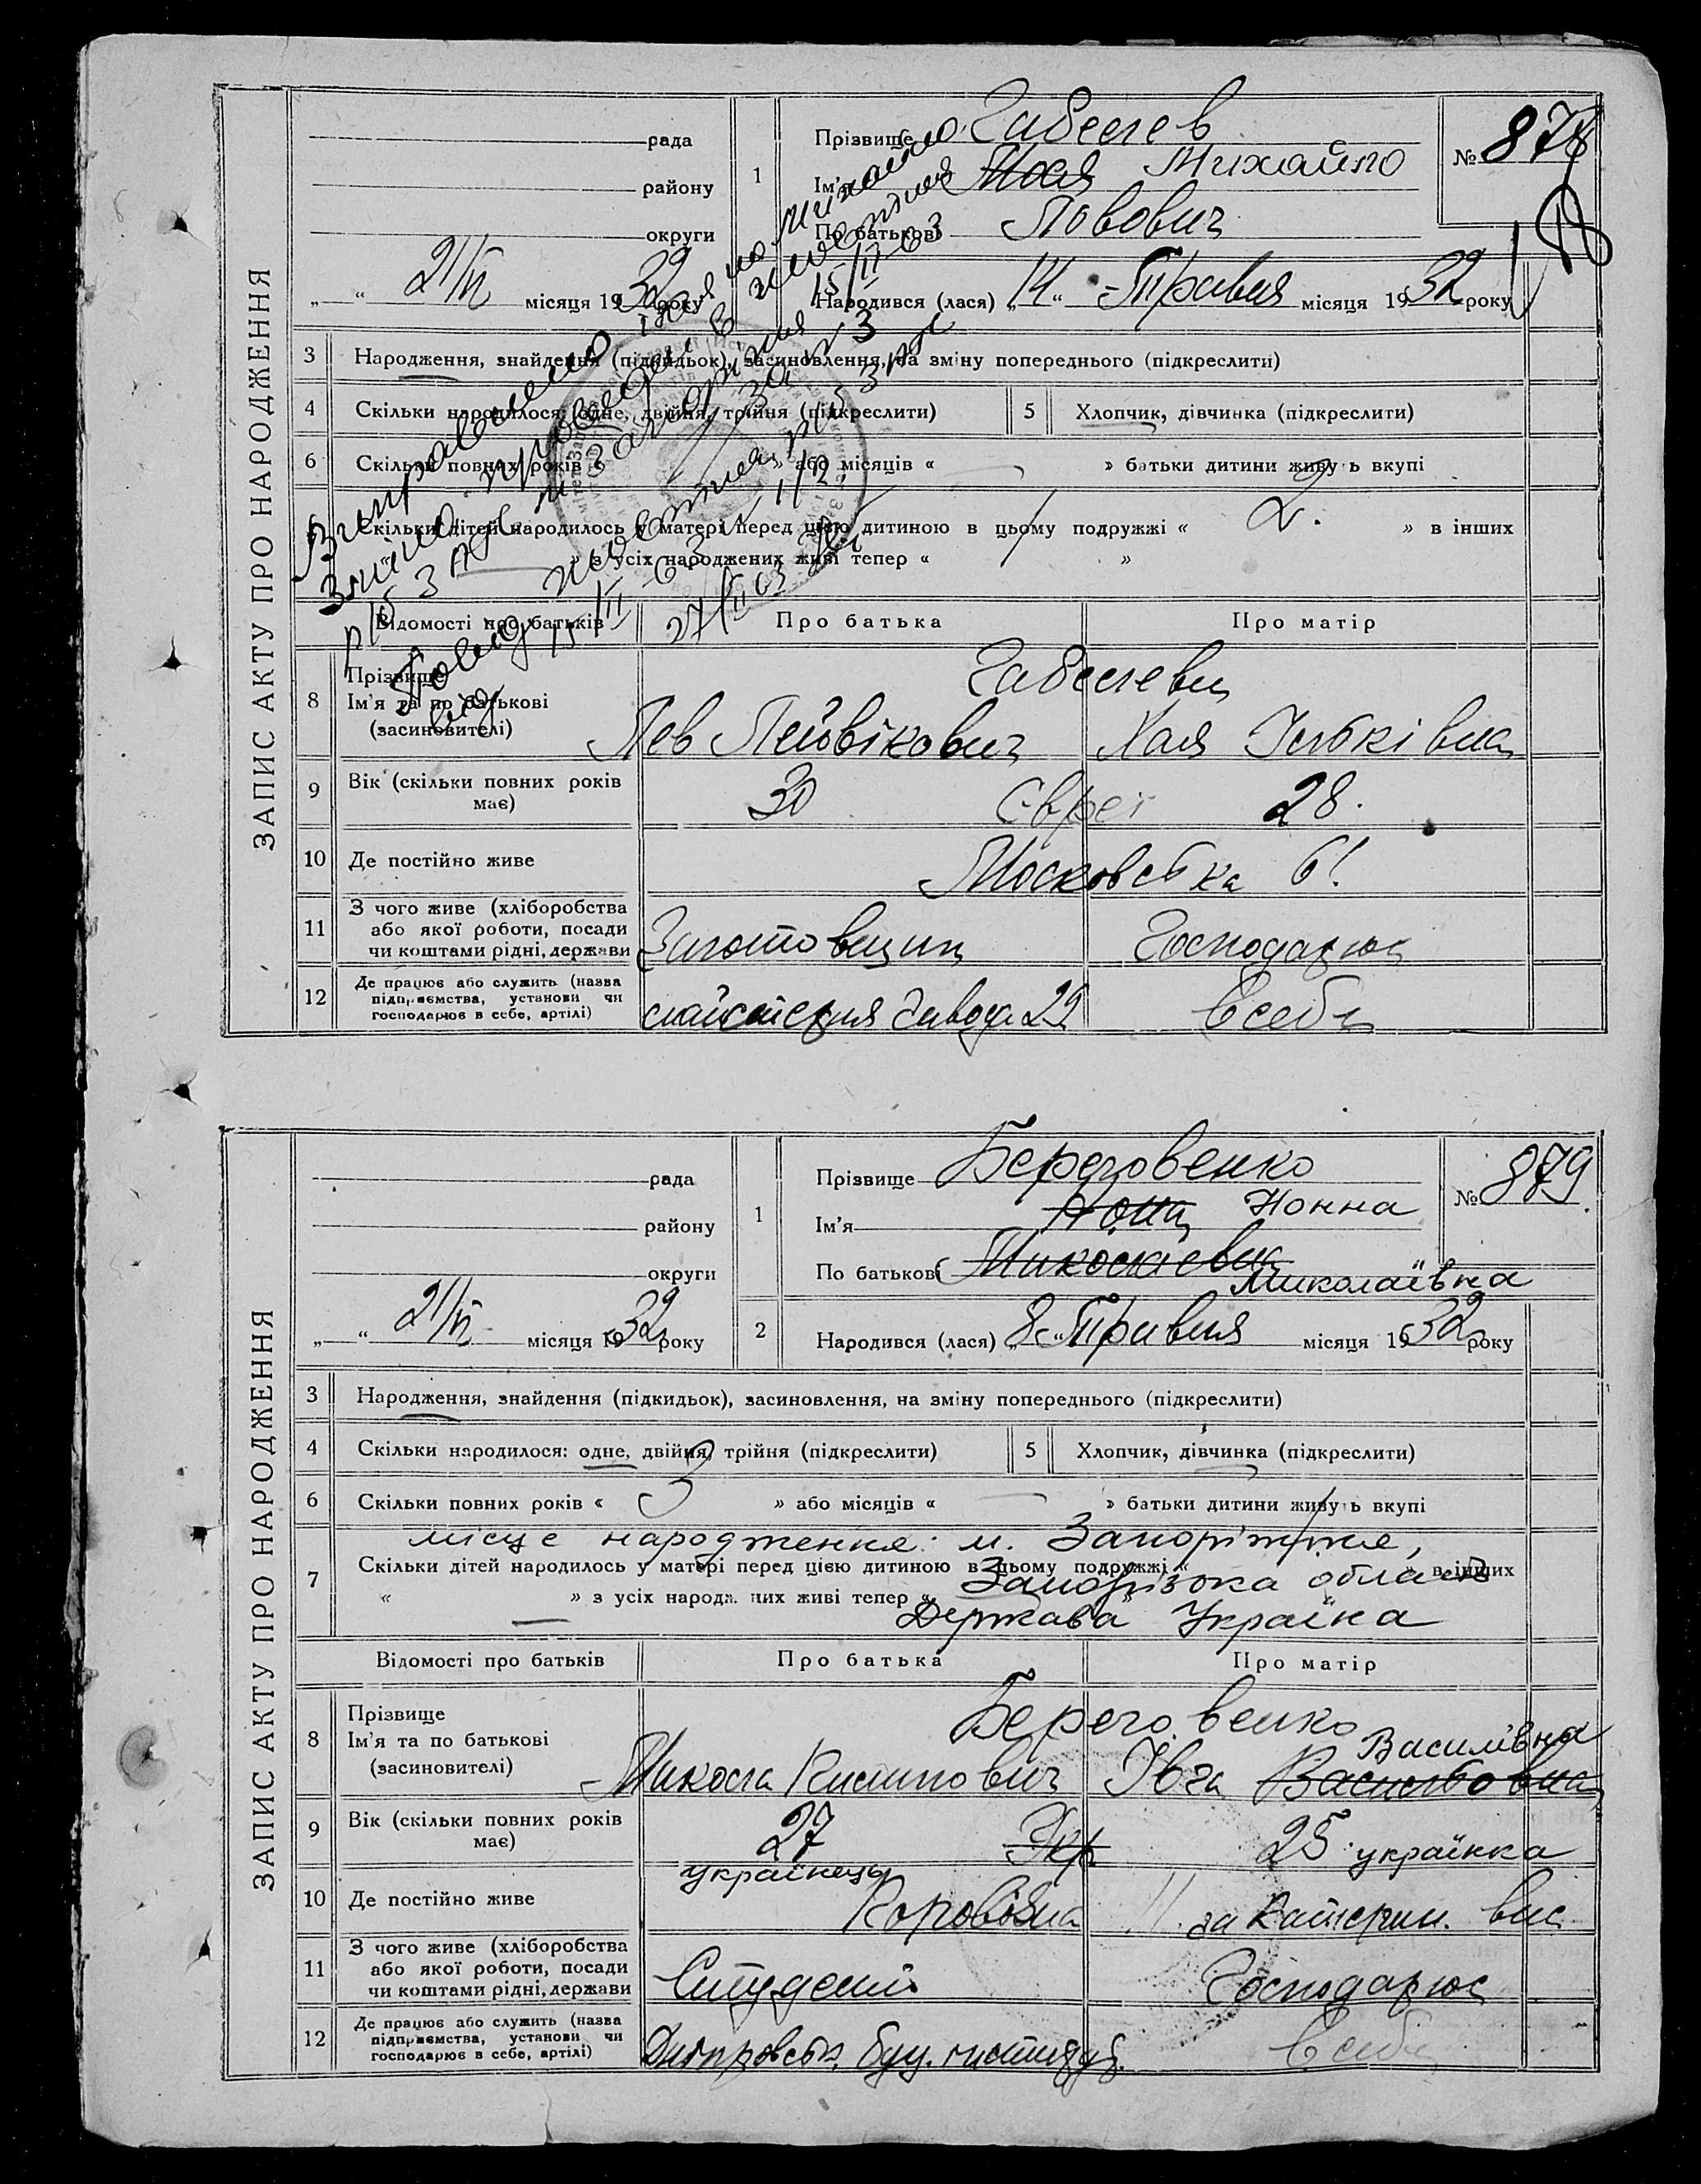 ЗАПИС АКТУ ПРО НАРОДЖЕННЯ
рада
району
округи
21/VI місяця 1932 року
1
Прізвище
Ім'я Мося Михайло
По батькові Львович
№ 878
Народився (лася) „14“ Травня місяця 1932 року
3 Народження, знайдення (підкидьок), засиновлення, на зміну попереднього (підкреслити)
4 Скільки народилося: одне, двійня, трійня (підкреслити)
5 Хлопчик, дівчинка (підкреслити)
6 Скільки повних років « » або місяців « » батьки дитини живуть вкупі
Скільки дітей народилось у матері перед цією дитиною в цьому подружжі « 2. » в інших
« » з усіх народжених живі тепер « »
Виправлено ім'я на Михайло
15/II-63
27/II 63
Відомості про батьків
Про батька
Про матір
8 Прізвище
Ім'я та по батькові
(засиновителі)
Лев Лейвікович
Хая
9 Вік (скільки повних років має)
30
Євреї
28.
10 Де постійно живе
Московська 61
11 З чого живе (хліборобства або якої роботи, посади чи коштами рідні, держави
Господарює
12 Де працює або служить (назва підприємства, установи чи господарює в себе, артілі)
майстерня завода 29
В себе
ЗАПИС АКТУ ПРО НАРОДЖЕННЯ
рада
району
округи
„ “ 21/VI місяця 1932 року
1
Прізвище Береговенко
Ім'я Нона Нонна
По батькові Миколаєвна Миколаївна
№ 879
2 Народився (лася) „8“ Травня місяця 1932 року
3 Народження, знайдення (підкидьок), засиновлення, на зміну попереднього (підкреслити)
4 Скільки народилося: одне, двійня, трійня (підкреслити)
5 Хлопчик, дівчинка (підкреслити)
6 Скільки повних років « 3 » або місяців « — » батьки дитини живуть вкупі
місце народження: м. Запоріжжя,
7 Скільки дітей народилось у матері перед цією дитиною в цьому подружжі « в інших
Запорізька область
« » з усіх народжених живі тепер «
Держава Україна
Відомості про батьків
Про батька
Про матір
8 Прізвище
Ім'я та по батькові
(засиновителі)
Береговенко
Микола Пилипович
Івга Васильовна Василівна
9 Вік (скільки повних років має)
27
українець
Укр
25 українка
10 Де постійно живе
за Катерин. вис
11 З чого живе (хліборобства або якої роботи, посади чи коштами рідні, держави
Студент
Господарює
12 Де працює або служить (назва підприємства, установи чи господарює в себе, артілі)
Дніпровськ. буд. інститут.
В себе